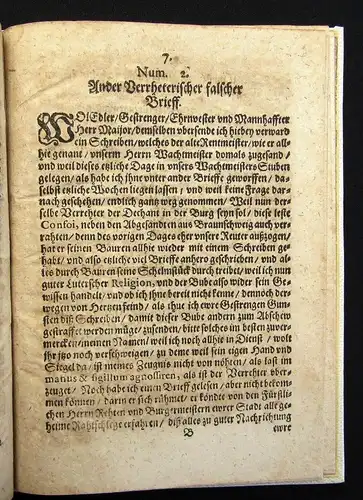 7.
Num. 2.
Ander Verrheterischer falscher
Brieff.
WOlEdler/Gestrenger/Ehrnvester und Mannhaffter
Herr Maijor/demselben ubersende ich hiebey verward
ein Schreiben/welches der alte Rentmeister/wie er all-
hie genant/unserm Herrn Wachtmeister domals zugesand/
und weil dieses etzliche Dage in unsers Wachtmeisters Stuben
gelegen/als habe ich ihn unter ander Brieffe geworffen/da-
selbst etzliche Wochen liegen lassen/und weil keine Frage dar-
nach geschehen/endlich gantz weg genommen/Weil nun der-
selbe Verrehter der Dechant in der Burg seyn sol/diese leste
Confoi, neben den Abgesandten aus Braunschweig auch ver-
rahten/denn des vorigen Dages eher unsere Reuter außzogen/
hat er seinen Bauren allhie wieder mit einem Schreiben ge-
habt/und also etzliche viel Brieffe anhero geschrieben/und al-
les durch Bauren seine Schelmstück durch treibet/weil ich nun
guter Luterischer Religion, und der Bube also wider sein Ge-
wissen handelt/und ob ich ihne bereit nicht kenne/dennoch der-
wegen von Hertzen feind/als thue ich ewre Gestrengen Gun-
sten diß Schreiben/damit dieser Bube andern zum Abschew
gestraffet werden müge/zusenden/bitte solches im besten zuver-
mercken/meinen Namen/weil ich noch allhie in Dienst/wolt
ihr itzo noch verschweigen/zu deme weil sein eigen Hand und
Siegel da/ist meines Zeugnis nicht von nöhten/als last im
manus & sigillum agnosciren, als ist der Verrehter uber-
zeuget/Noch habe ich einen Brieff gelesen/aber nicht bekom-
men können/darin er sich rühmet/er könte von den Fürstli-
chen Herrn Rehten und Burgermeistern ewrer Stadt alle ge-
heime Rahtschlege erfahren/diß alles zu guter Nachrichtung
B ewre